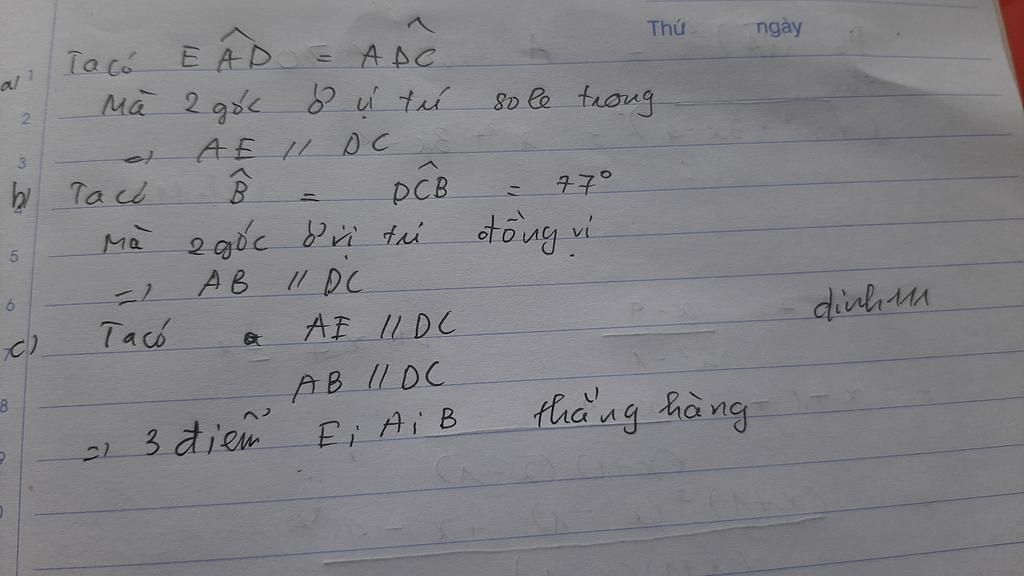 Thứ ngày
a) Ta có EÂD = AD̂C
Mà 2 góc ở vị trí so le trong
=> AE // DC
b) Ta có B̂ = DĈB = 77°
Mà 2 góc ở vị trí đồng vị
=> AB // DC
c) Ta có AE // DC
AB // DC
=> 3 điểm E; A; B thẳng hàng